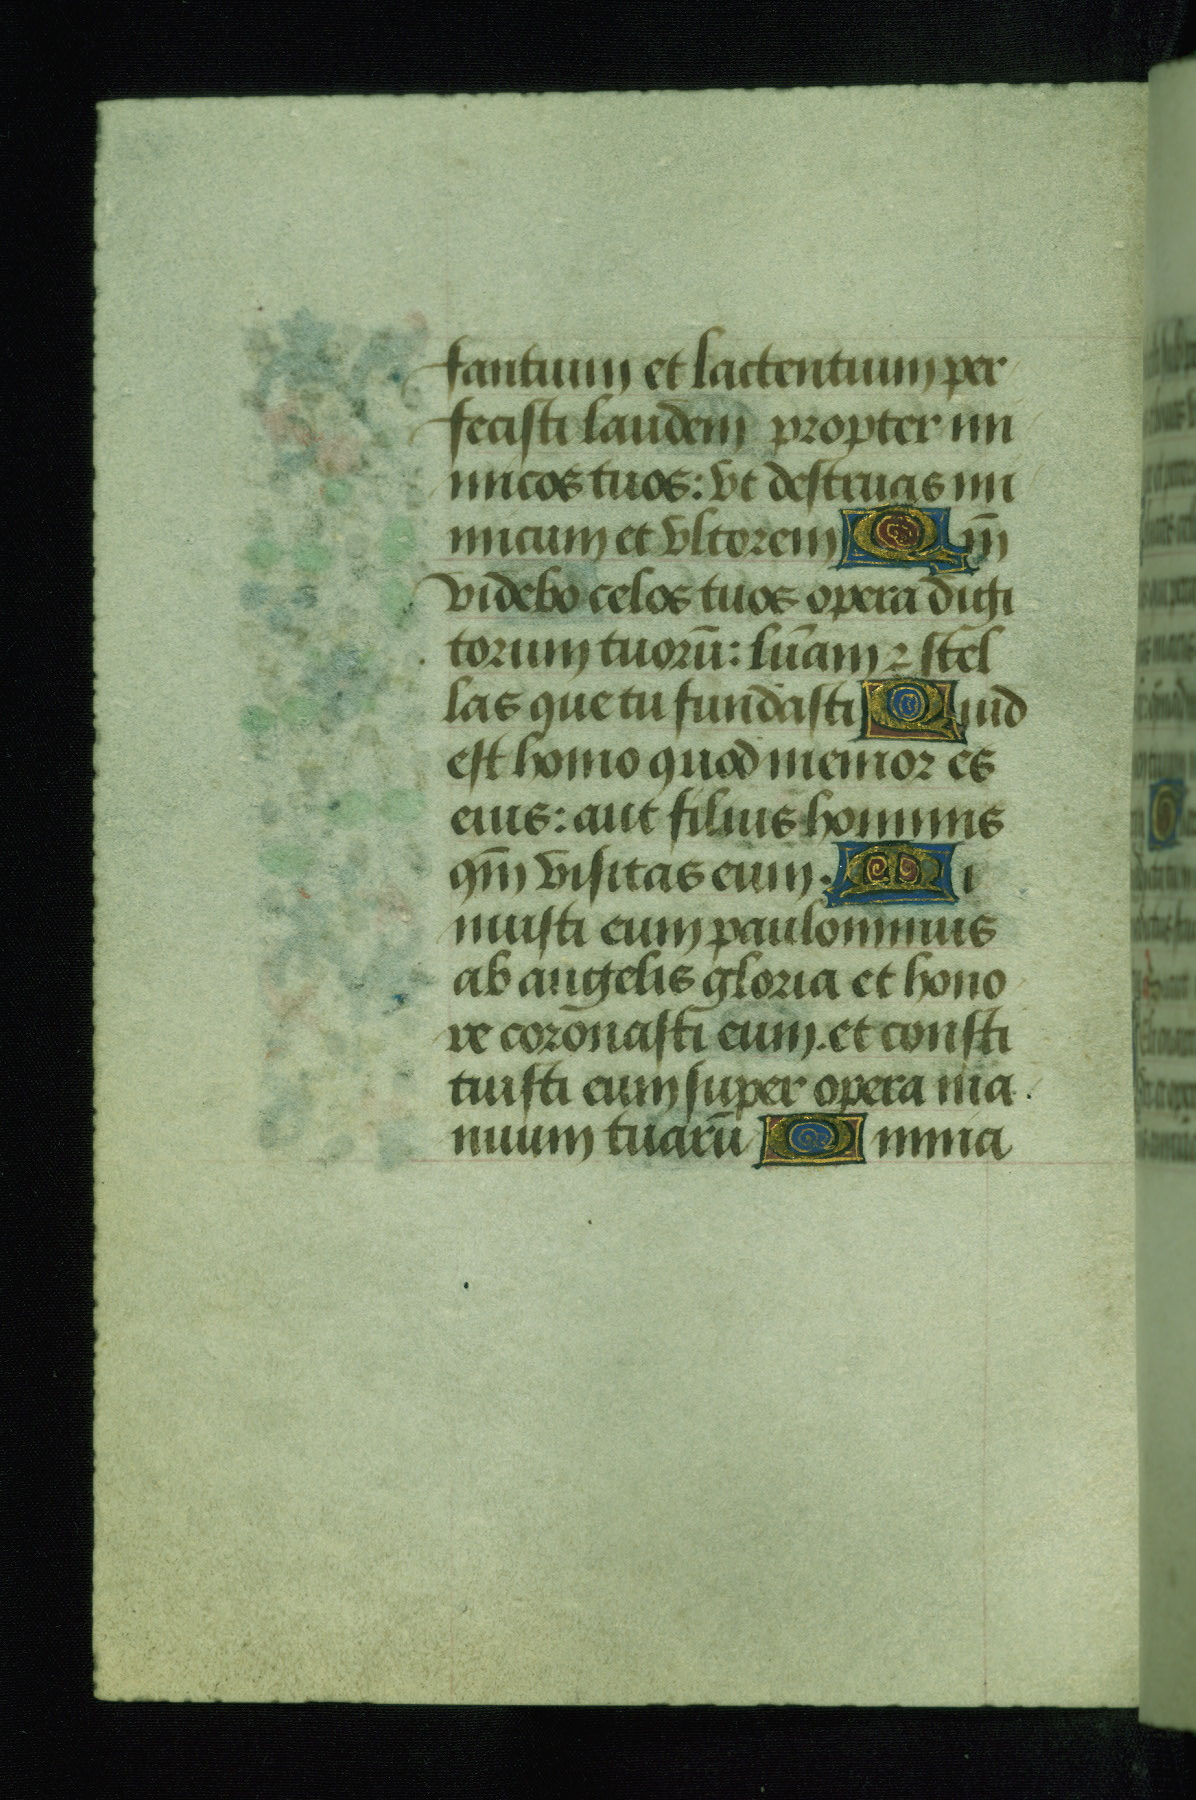 fantium et lactentium per
fecisti laudem propter ini
micos tuos: vt destruas ini
micum et vltorem Qm̄
videbo celos tuos opera digi
torum tuorū: lunam ⁊ stel
las que tu fundasti Quid
est homo quod memor es
eius: aut filius hominis
qm̄ visitas eum: Mi
nuisti eum paulominus
ab angelis gloria et hono
re coronasti eum. et consti
tuisti eum super opera ma
nuum tuarū Omnia